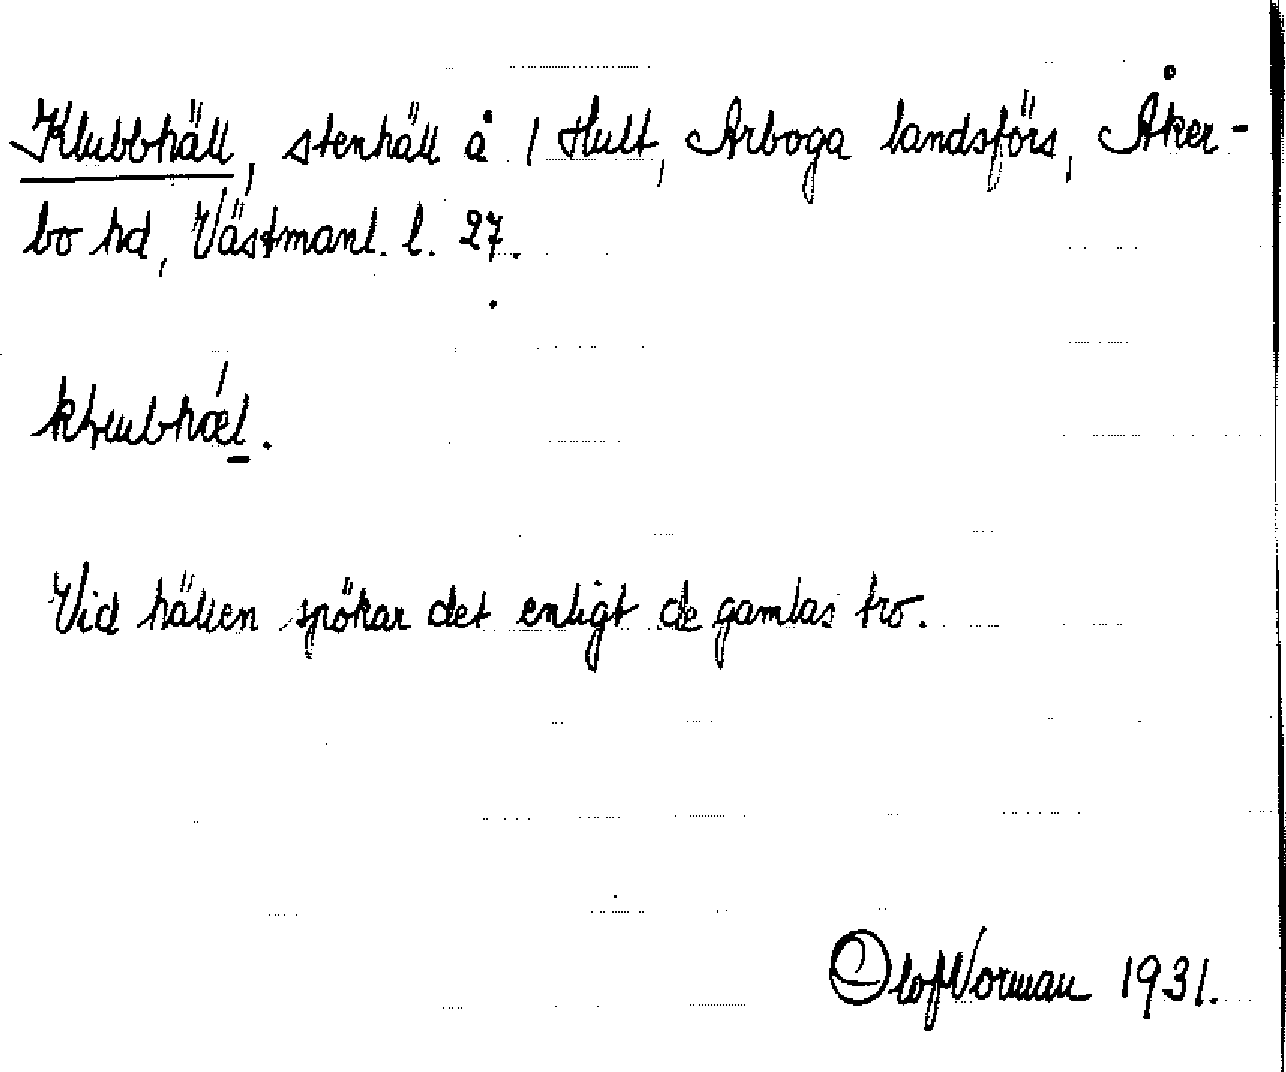 Klubbhäll, stenhäll å 1 Hult, Arboga landsförs, Åker-
bo hd, Västmanl. l. 27.
Vid hällen spökar det enligt de gamlas tro.
Olof Norman 1931.